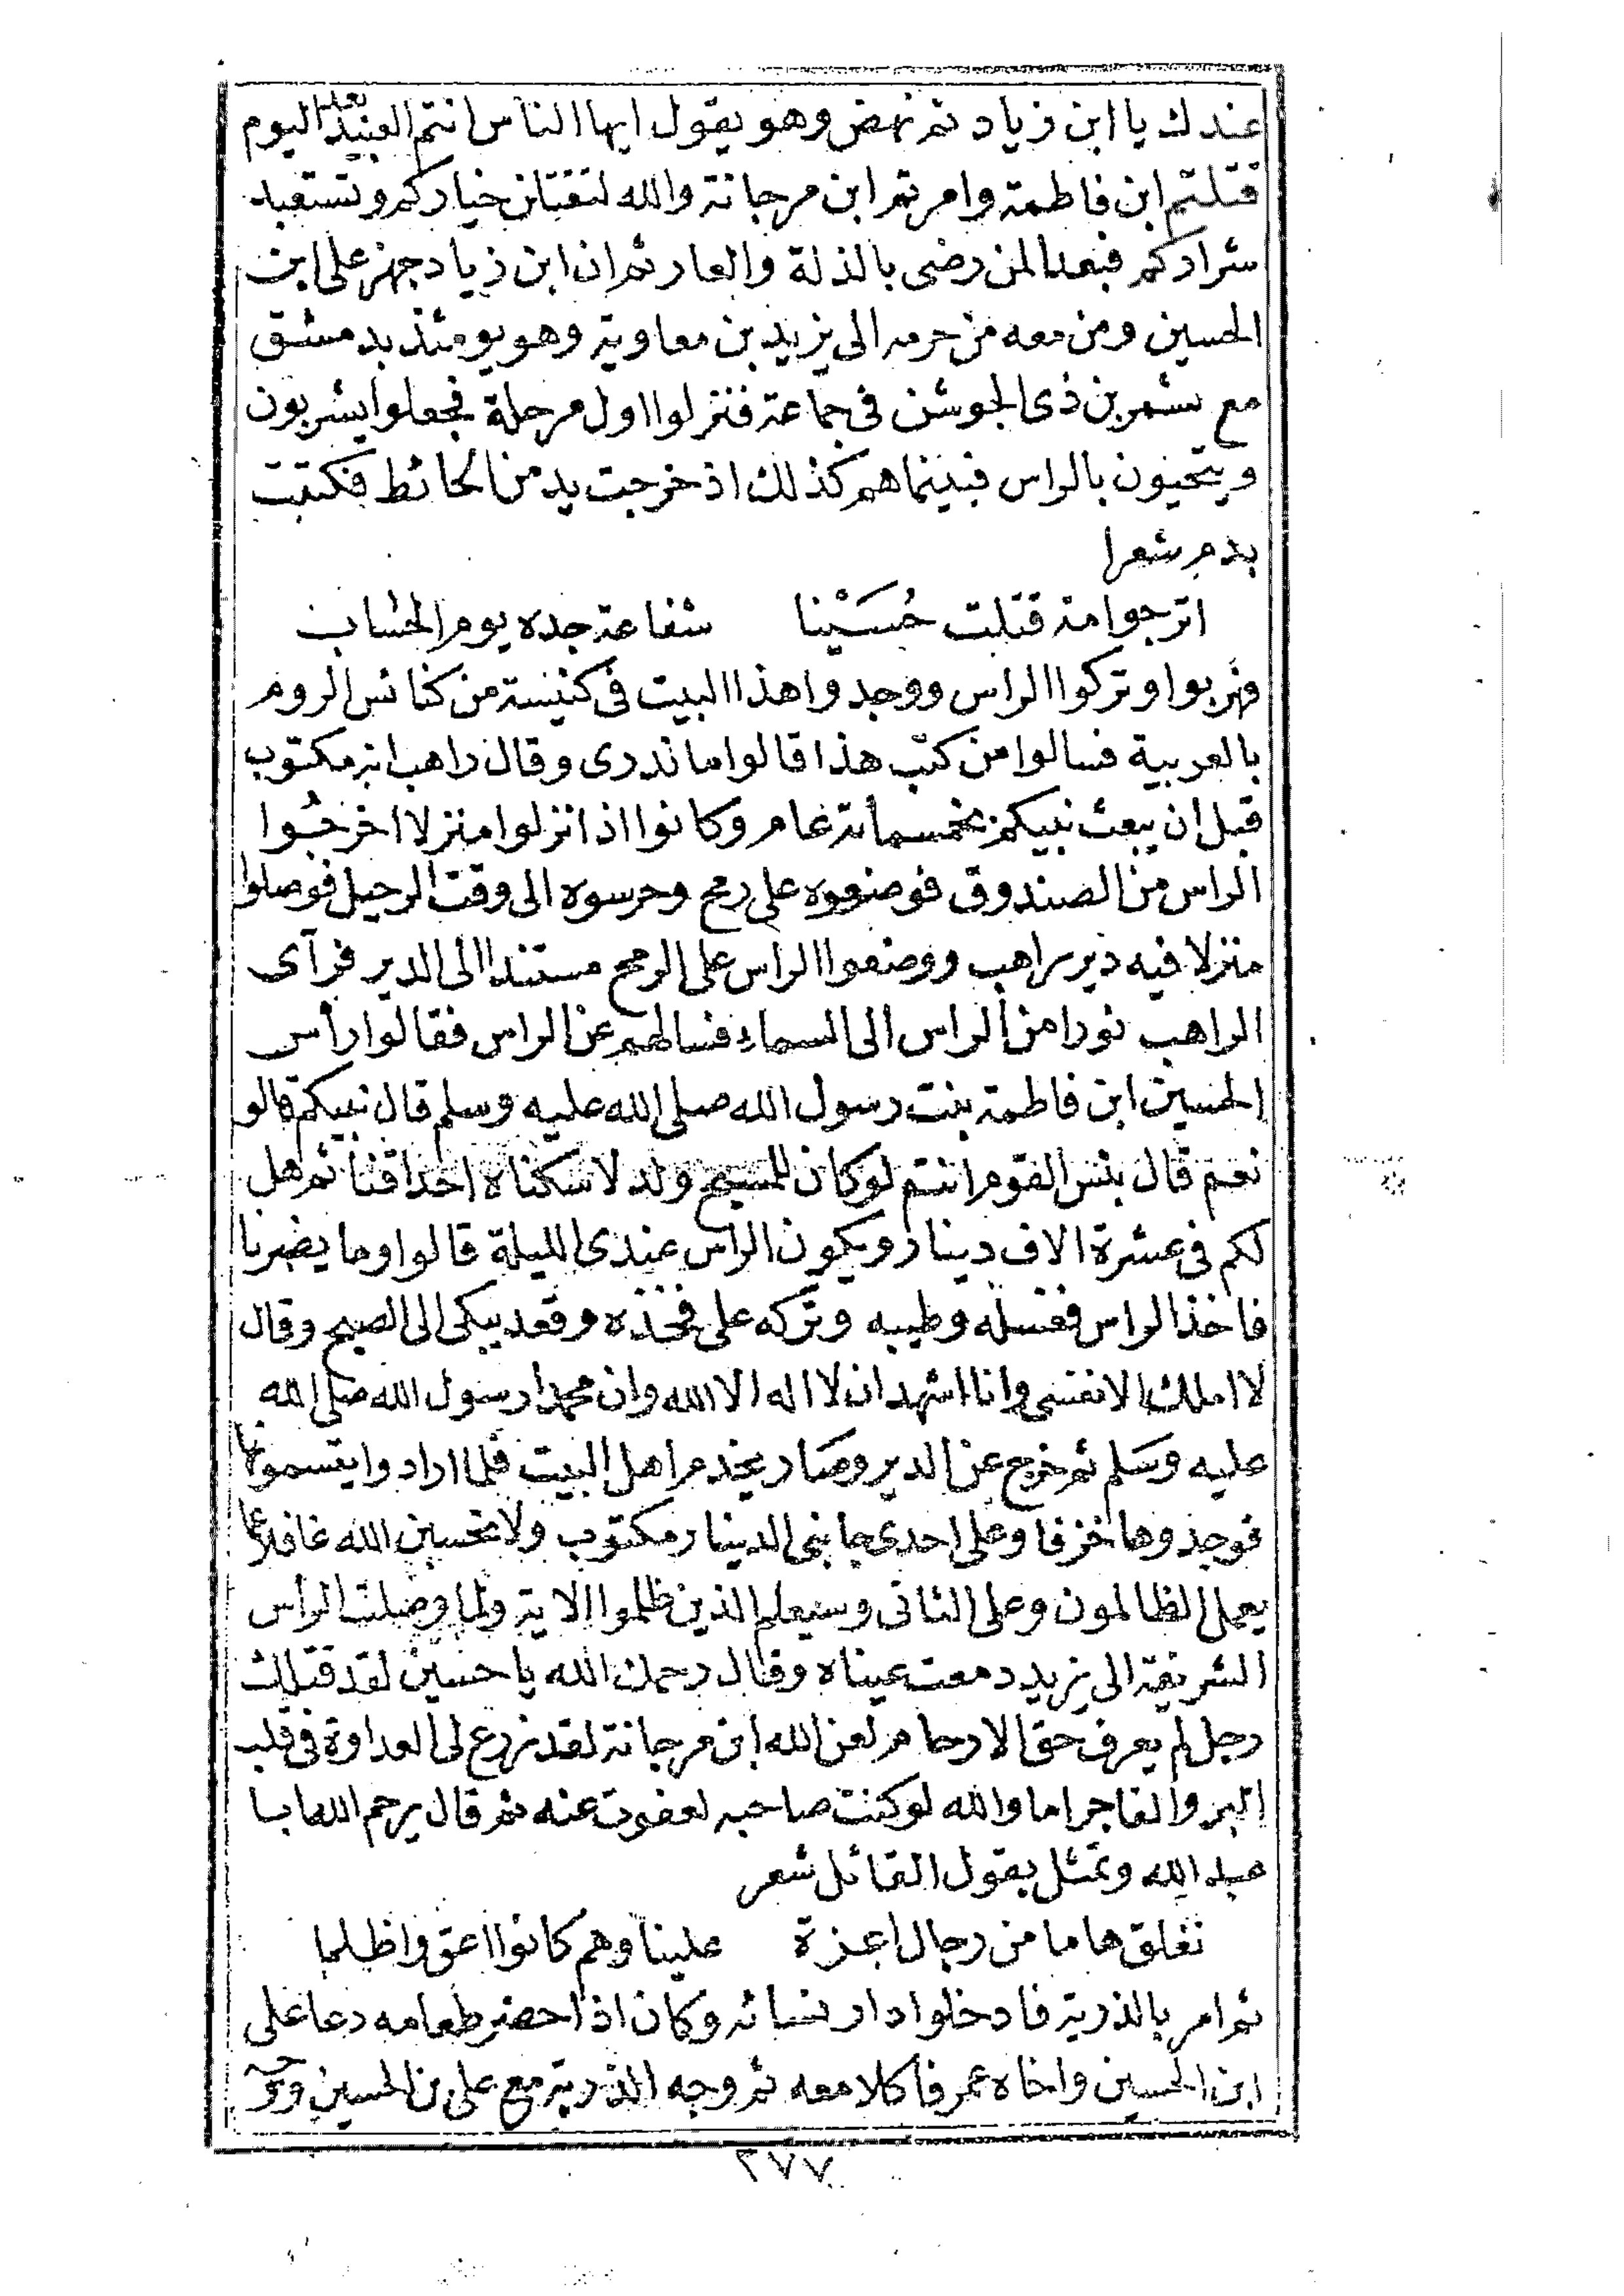 عندك يا ابن زياد ثم نهض وهو يقول ايها الناس انتم العبيد بعد اليوم
قتلتم ابن فاطمة وامرتم ابن مرجانة والله لتقتلن خياركم وتستعبد
شراركم فبعدا لمن رضى بالذلة والعار ثم ان ابن زياد جهز على ابن
الحسين ومن معه من حرمه الى يزيد بن معاوية وهو يومئذ بدمشق
مع شمر بن ذى الجوشن فى جماعة فنزلوا اول مرحلة فجعلوا يشربون
ويتحيون بالراس فبينما هم كذلك اذ خرجت يد من الحائط فكتبت
بدم شعرا
اترجوا امة قتلت حُسَيْنا شفاعة جده يوم الحساب
فهربوا وتركوا الراس ووجدوا هذا البيت فى كنيسة من كنائس الروم
بالعربية فسالوا من كتب هذا قالوا ما ندرى وقال راهب انه مكتوب
قبل ان يبعث نبيكم بخمسمائة عام وكانوا اذا نزلوا منزلا اخرجوا
الراس من الصندوق فوضعوه على رمح وحرسوه الى وقت الرحيل فوصلوا
منزلا فيه دير راهب ووضعوا الراس على الرمح مستندا الى الدير فرآى
الراهب نورا من الراس الى السماء فسالهم عن الراس فقالوا رأس
الحسين ابن فاطمة بنت رسول الله صلى الله عليه وسلم قال نبيكم قالو
نعم قال بئس القوم انتم لو كان للمسيح ولد لاسكناه احداقنا ثم هل
لكم فى عشرة الاف دينار ويكون الراس عندى الليلة قالوا وما يضرنا
فاخذ الراس فغسله وطيبه وتركه على فخذه وقعد يبكى الى الصبح وقال
لا املك الا نفسى وانا اشهد ان لا اله الا الله وان محمدا رسول الله صلى الله
عليه وسَلم ثم خرج عن الدير وصَار يخدم اهل البيت فلما ارادوا يقسموها
فوجدوها خزفا وعلى احدى جانبى الدينار مكتوب ولا تحسبن الله غافلا عما
يعمل الظالمون وعلى الثانى وسيعلم الذين ظلموا الاية ولما وصلت الراس
الشريفة الى يزيد دمعت عيناه وقال رحمك الله يا حسين لقد قتلك
رجل لم يعرف حق الارحام لعن الله ابن مرجانة لقد زرع لى العداوة فى قلب
البر والفاجر اما والله لو كنت صاحبه لعفوت عنه ثم قال يرحم الله ابا
عبد الله وتمثل بقول القائل شعر
نفلق هاما من رجال اعزة علينا وهم كانوا اعق واظلما
ثم امر بالذرية فادخلوا دار نسائه وكان اذا احضر طعامه دعا على
ابن الحسين واخاه عمر فاكلا معه ثم وجه الذرية مع على بن الحسين
٢٧٧